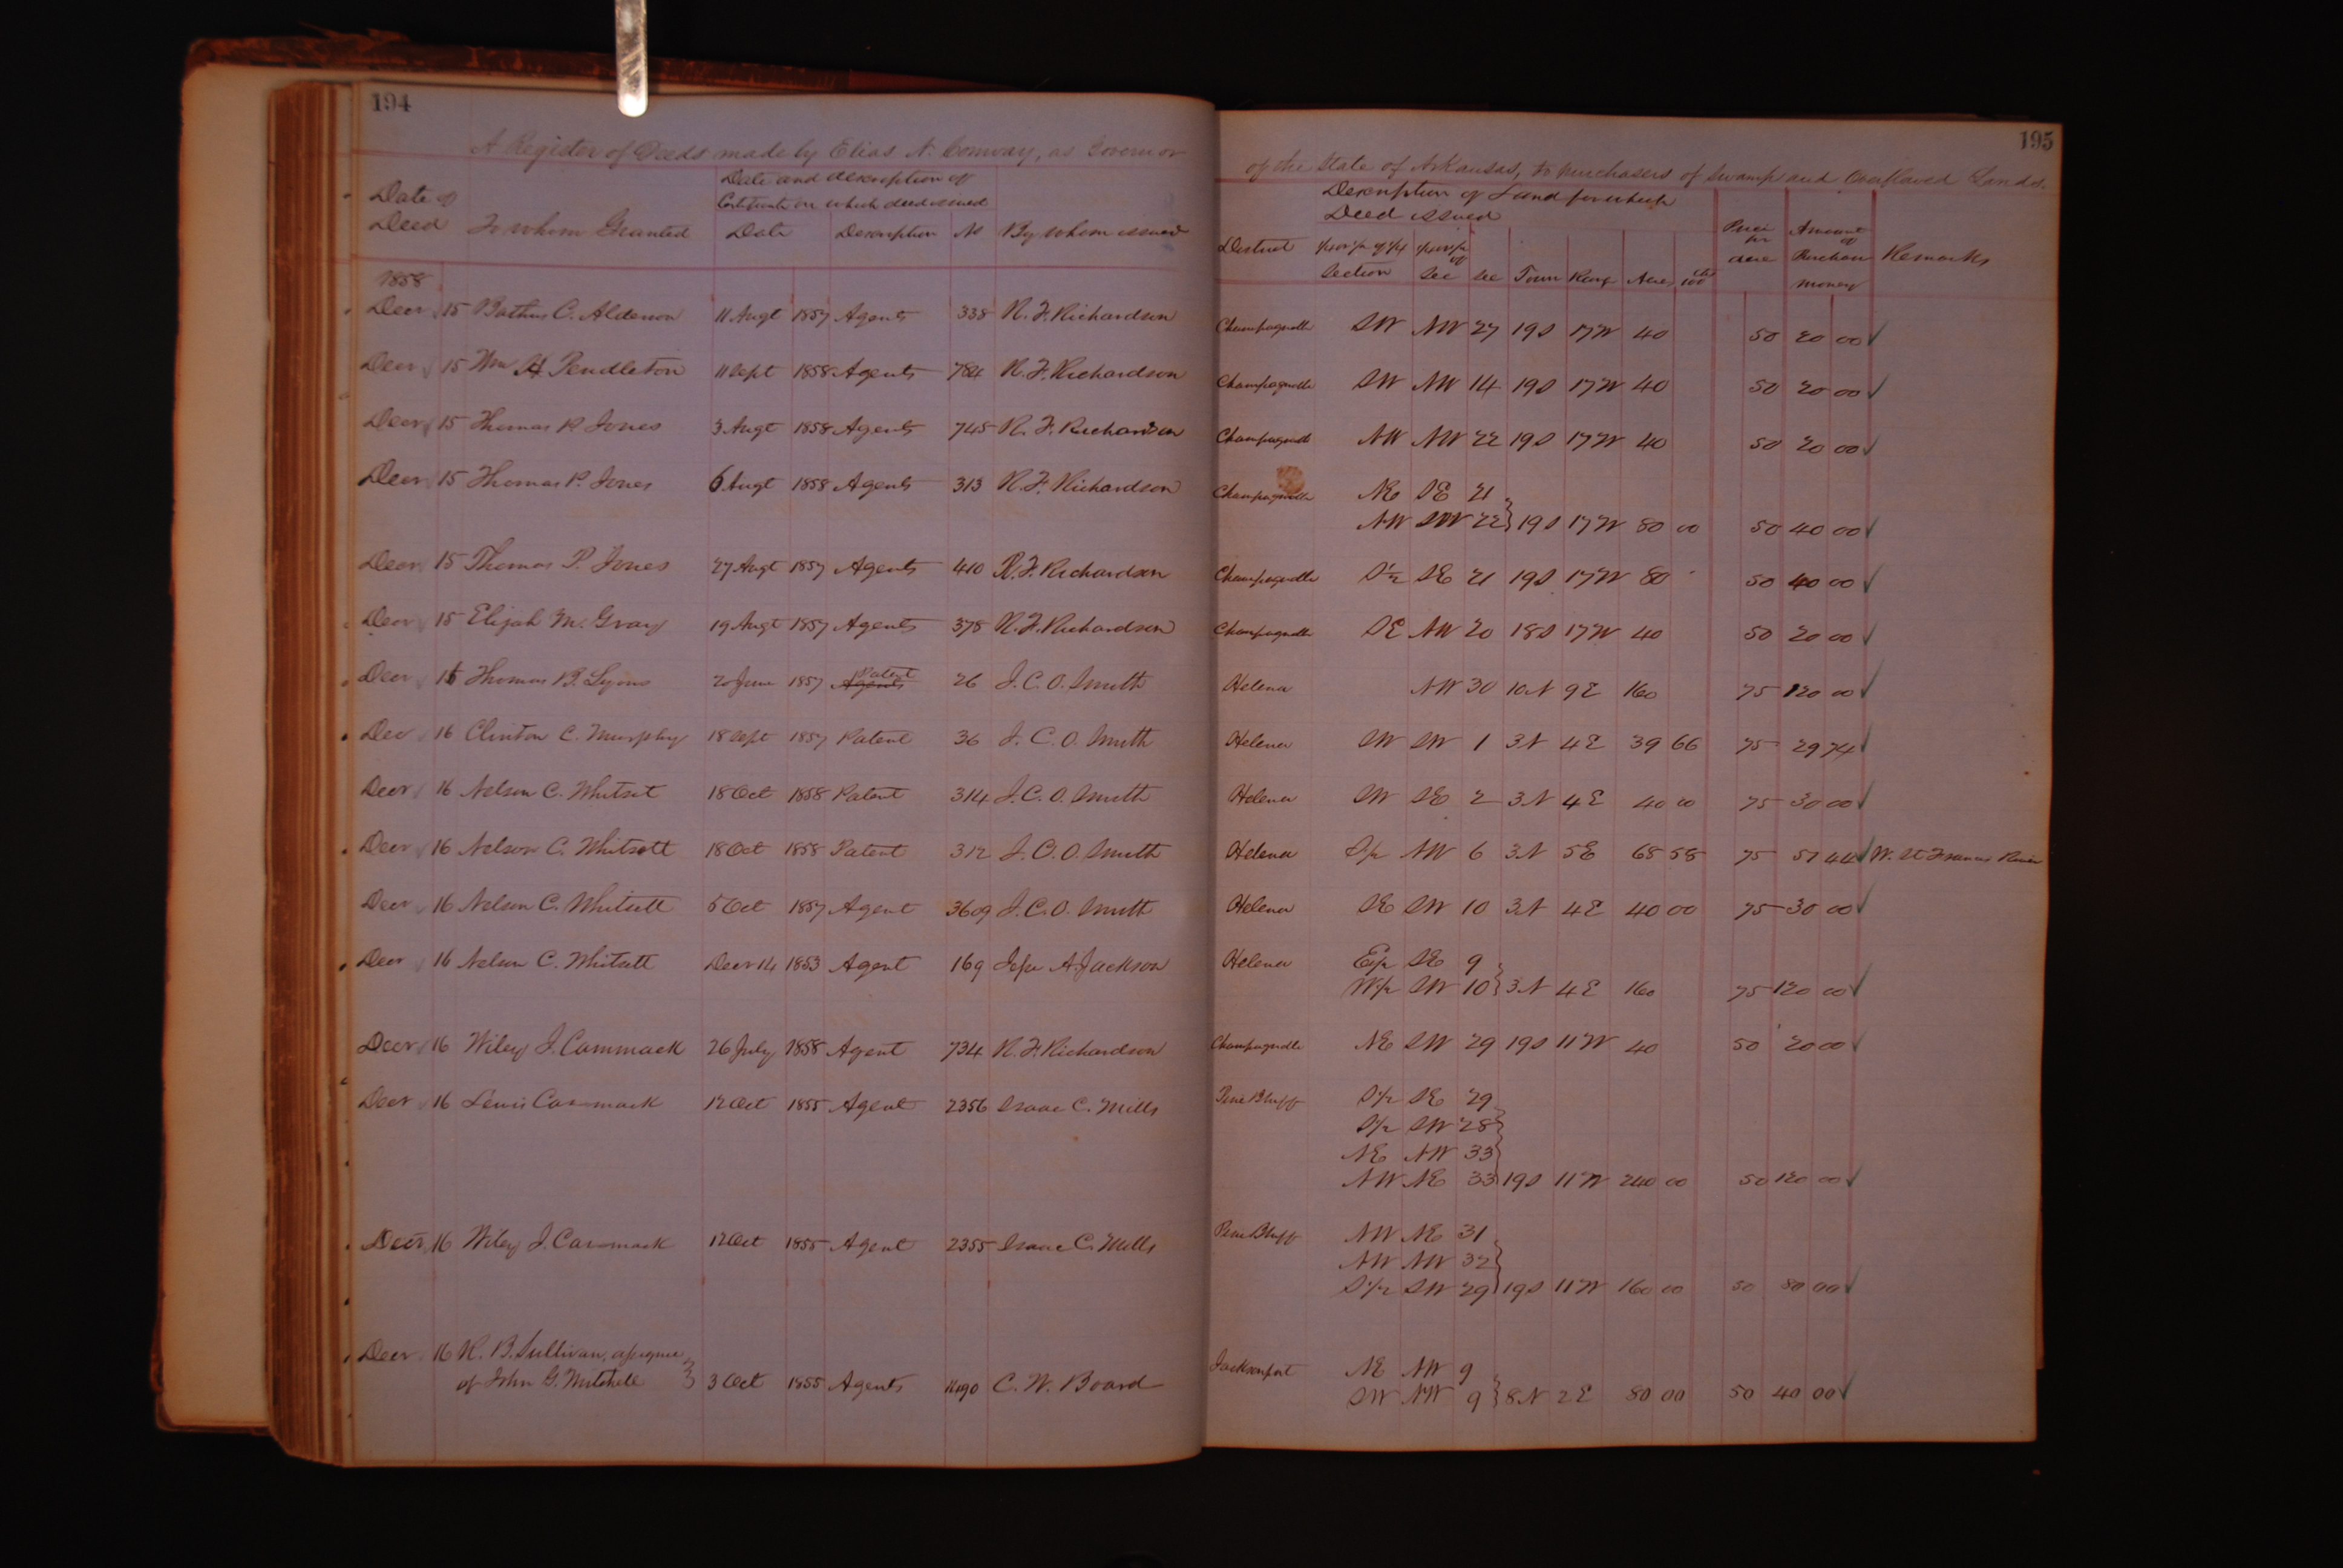 194
A Register of Deeds made by Elias N. Conway, as Governor
Date of Deed To whom Granted Date and description of Certificate on which deed issued
Date Description No By whom issued
1858
Decr 15 C. Alderson 11 Augt 1857 Agents 338 R. F. Richardson
Decr 15 Wm H Pendleton 11 Sept 1858 Agents 784 R. F. Richardson
Decr 15 Thomas P. Jones 3 Augt 1858 Agents 745 R. F. Richardson
Decr 15 Thomas P. Jones 6 Augt 1858 Agents 313 R. F. Richardson
Decr 15 Thomas P. Jones 27 Augt 1857 Agents 410 R. F. Richardson
Decr 15 Elijah M. Gray 19 Augt 1857 Agents 378 R. F. Richardson
Decr 16 Thomas B. Lyons 20 June 1857 Agents Patent 26 J. C. O. Smith
Dec 16 Clinton C. Murphy 18 Sept 1857 Patent 36 J. C. O. Smith
Decr 16 Nelson C. Whitset 18 Oct 1858 Patent 314 J. C. O. Smith
Decr 16 Nelson C. Whitsett 18 Oct 1858 Patent 312 J. C. O. Smith
Decr 16 Nelson C. Whitsett 5 Oct 1857 Agent 3609 J. C. O. Smith
Decr 16 Nelson C. Whitsett Decr 14 1853 Agent 169 A. Jackson
Decr 16 Wiley J. Cammack 26 July 1858 Agent 734 R. F. Richardson
Decr 16 Lewis Cammack 12 Oct 1855 Agent 2356 Isaac C. Mills
Decr 16 Wiley J. Cammack 12 Oct 1855 Agent 2355 Isaac C. Mills
Decr 16 R. B. Sullivan, assignee
of John G. Mitchell 3 Oct 1855 Agents C. W. Board
195
of the State of Arkansas, to purchasers of Swamp and Overflowed Lands.
Description of Land for which Deed issued
District 1/4 or 1/2 of 1/4 Section 1/4 or 1/2 of Sec Sec Town Rang Acres 100 Price pr acre Amount of Purchase money Remarks
Champagnolle SW NW 27 19S 17W 40 50 20 00
Champagnolle SW NW 14 19S 17W 40 50 20 00
Champagnolle NW NW 22 19S 17W 40 50 20 00
Champagnolle NE SE 21
NW SW 22 19S 17W 80 00 50 40 00
Champagnolle S1/2 SE 21 19S 17W 80 50 40 00
Champagnolle SE NW 20 18S 17W 40 50 20 00
Helena NW 30 10N 9E 160 75 120 00
Helena SW SW 1 3N 4E 39 66 75 29 74
Helena SW SE 2 3N 4E 40 00 75 30 00
Helena S1/2 NW 6 3N 5E 68 58 75 51 44 W. St Francis River
Helena SE SW 10 3N 4E 40 00 75 30 00
Helena E1/2 SE 9
W1/2 SW 10 3N 4E 160 75 120 00
Champagnolle NE SW 29 19S 11W 40 50 20 00
Pine Bluff S1/2 SE 29
S1/2 SW 28
NE NW 33
NW NE 33 19S 11W 240 00 50 120 00
Pine Bluff NW NE 31
NW NW 32
S1/2 SW 29 19S 11W 160 00 50 80 00
Jacksonport NE NW 9
SW NW 9 8N 2E 80 00 50 40 00